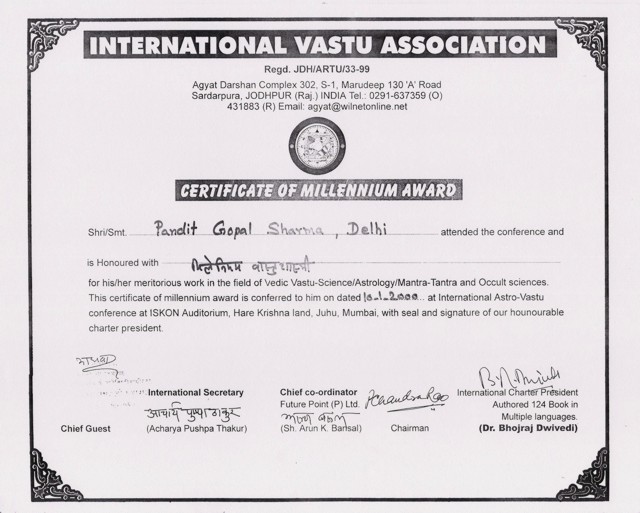 INTERNATIONAL VASTU ASSOCIATION
Regd. JDH/ARTU/33-99
Agyat Darshan Complex 302, S-1, Marudeep 130 'A' Road
Sardarpura, JODHPUR (Raj.) INDIA Tel.: 0291-637359 (O)
431883 (R) Email: agyat@wilnetonline.net
CERTIFICATE OF MILLENNIUM AWARD
Shri/Smt. Pandit Gopal Sharma, Delhi attended the conference and
is Honoured with मिलेनियम वास्तुशास्त्री
for his/her meritorious work in the field of Vedic Vastu-Science/Astrology/Mantra-Tantra and Occult sciences.
This certificate of millennium award is conferred to him on dated 10-1-2000 at International Astro-Vastu
conference at ISKON Auditorium, Hare Krishna land, Juhu, Mumbai, with seal and signature of our hounourable
charter president.
Chief Guest
International Secretary
आचार्य पुष्पा ठाकुर
(Acharya Pushpa Thakur)
Chief co-ordinator
Future Point (P) Ltd.
अरुण बंसल
(Sh. Arun K. Bansal)
Chairman
International Charter President
Authored 124 Book in
Multiple languages.
(Dr. Bhojraj Dwivedi)